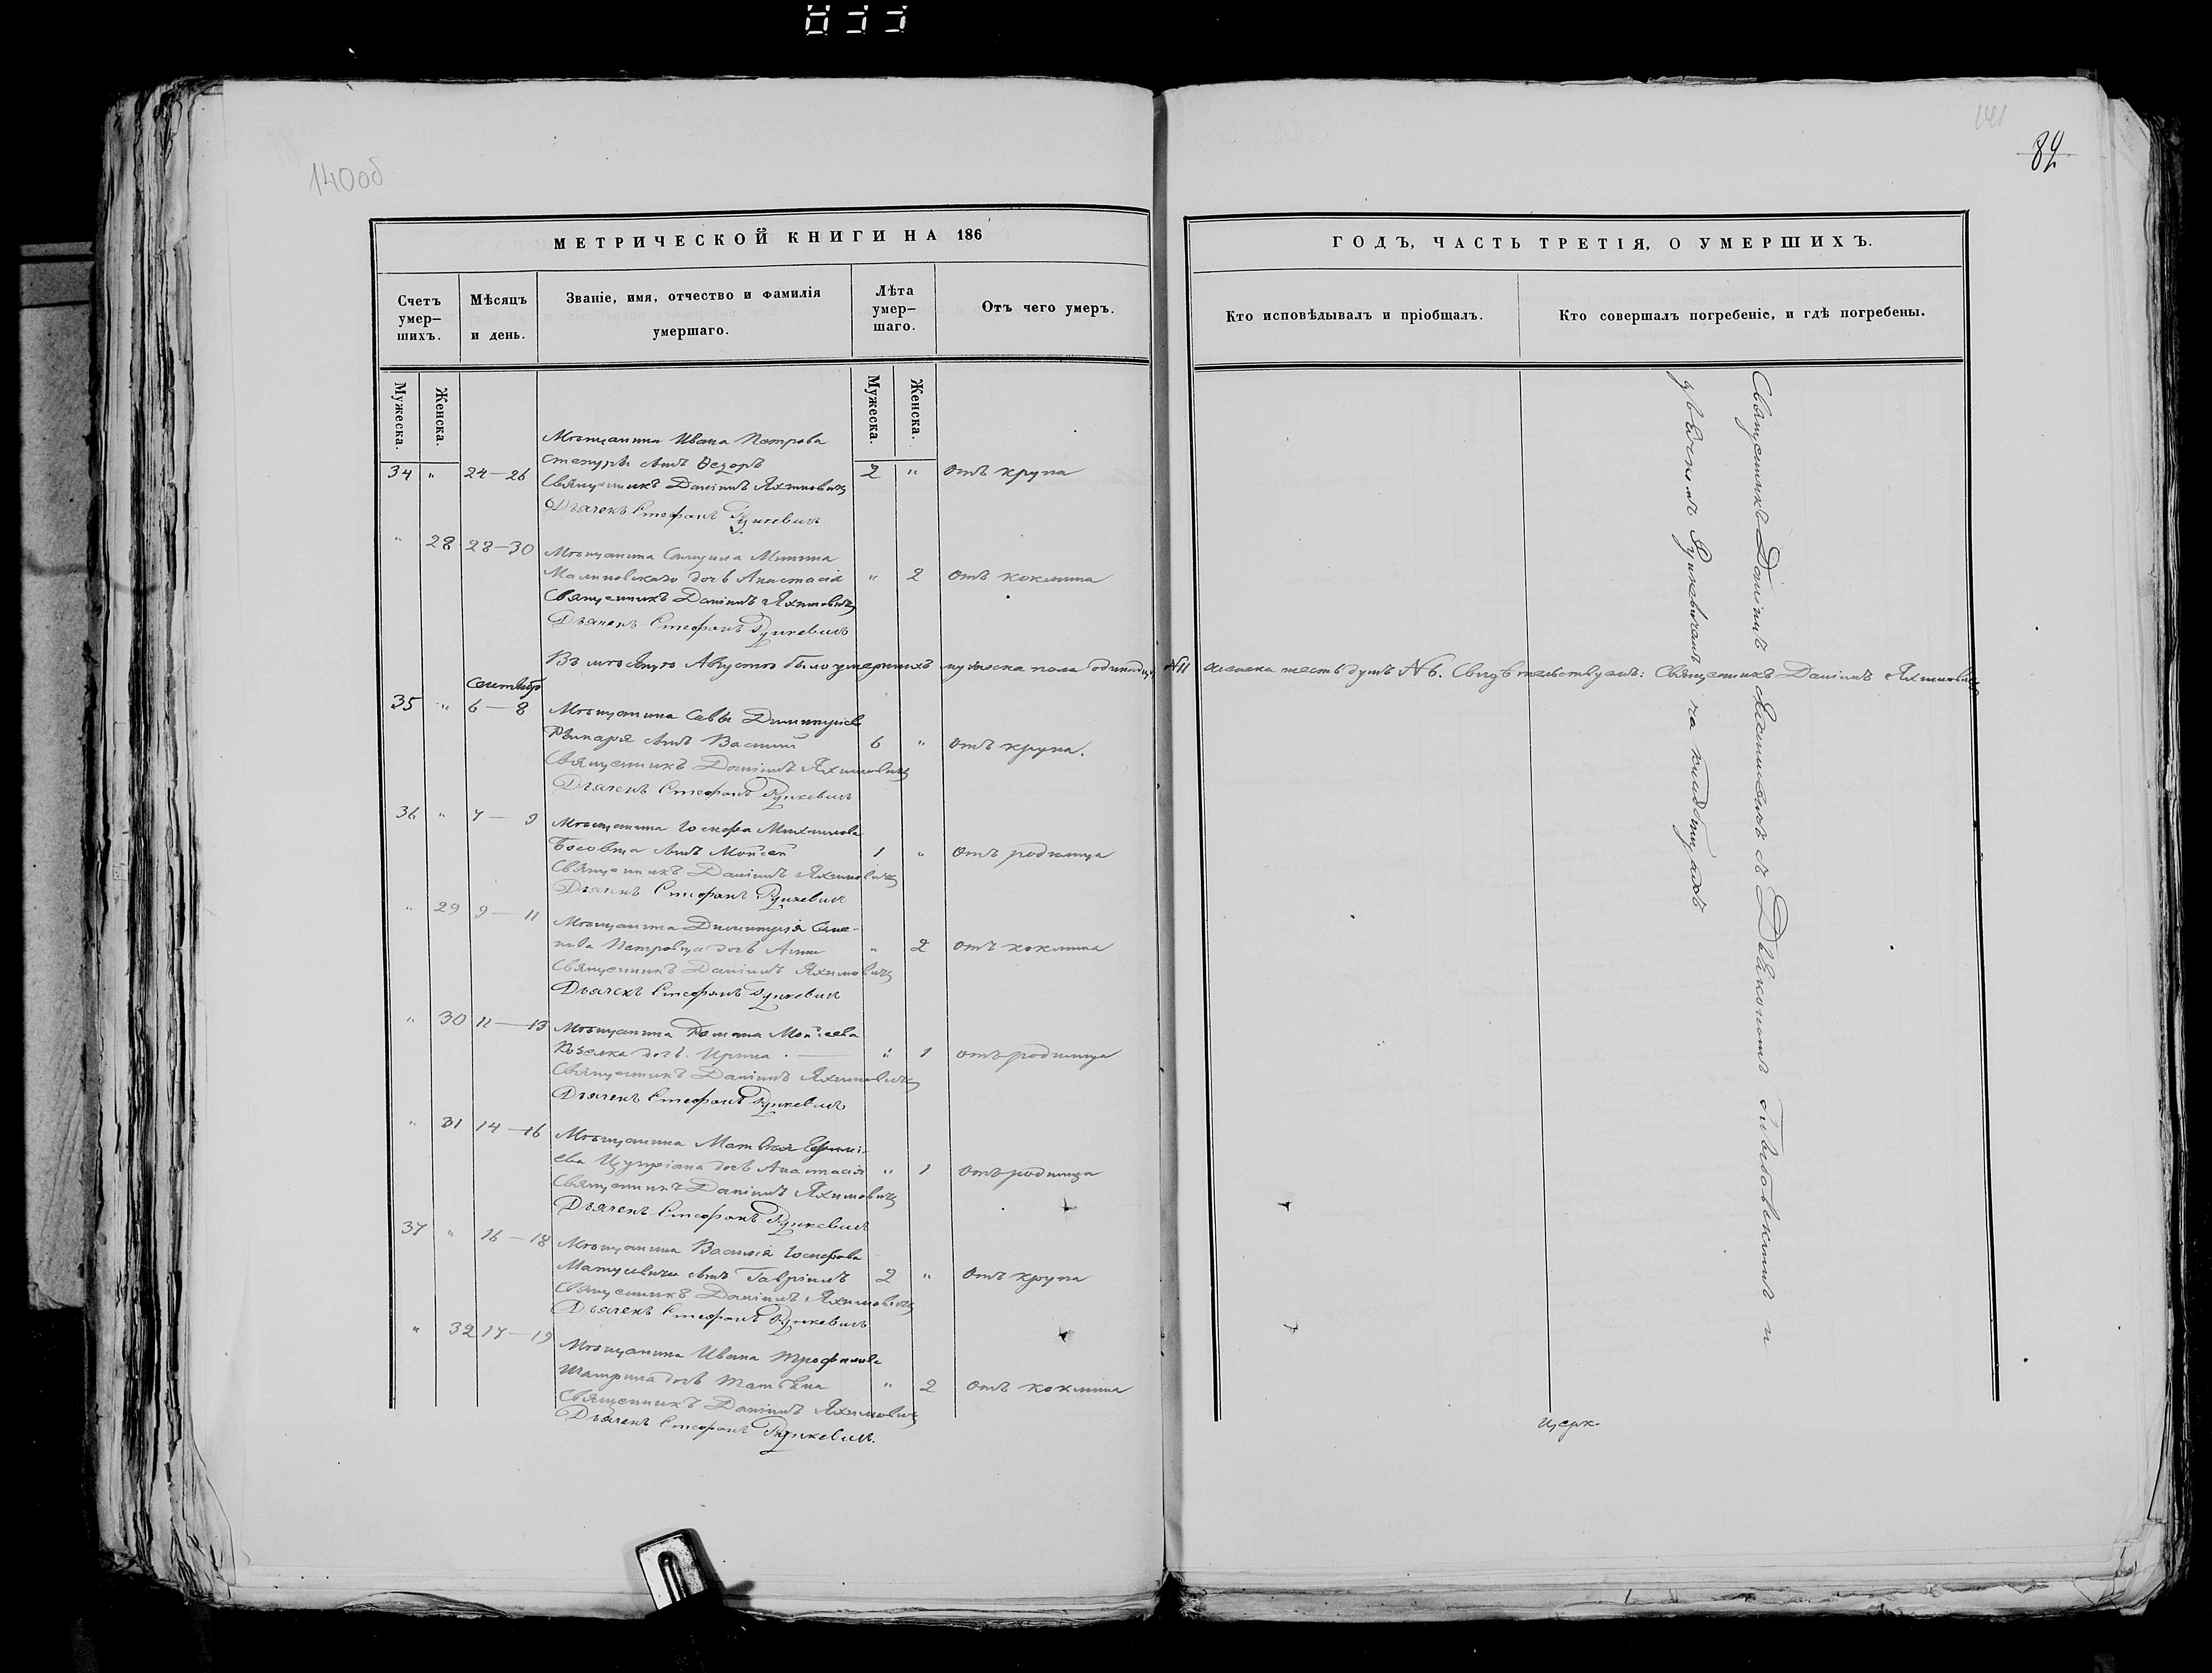 140об
141
84
МЕТРИЧЕСКОЙ КНИГИ НА 186
ГОДЪ, ЧАСТЬ ТРЕТІЯ, О УМЕРШИХЪ.
Счетъ умер-
шихъ.
Мѣсяцъ
и день.
Званіе, имя, отчество и фамилія
умершаго.
Лѣта
умер-
шаго.
Отъ чего умеръ.
Кто исповѣдывалъ и пріобщалъ.
Кто совершалъ погребеніе, и гдѣ погребены.
Мужеска.
Женска.
Мужеска.
Женска.
Мѣщанина Ивана Петрова
34 " 24—26 сынъ Ѳедоръ 2 " Отъ крупа
Священникъ Даніилъ Яхимовичъ
Дьячекъ Стефанъ
" 28 28—30 Мѣщанина Самуила
Малиновскаго дочь Анастасія " 2 Отъ коклюша
Священникъ Даніилъ Яхимовичъ
Дьячекъ Стефанъ
Въ мѣсяцѣ Августѣ было умершихъ мужеска пола одинадцать №11 женска шесть душъ №6. Свидѣтельствуемъ: Священникъ Даніилъ Яхимовичъ
Сентябр
35 " 6—8 Мѣщанина Савы Димитріева
сынъ Василій 6 " Отъ крупа.
Священникъ Даніилъ Яхимовичъ
Дьячекъ Стефанъ
36 " 7—9 Мѣщанина Іосифа Михайлова
сынъ Мойсей 1 " Отъ родимца
Священникъ Даніилъ Яхимовичъ
Дьячекъ Стефанъ
" 29 9—11 Мѣщанина Димитрія Семе-
нова Петровца дочь Анна " 2 Отъ коклюша
Священникъ Даніилъ Яхимовичъ
Дьячекъ Стефанъ
" 30 11—13 Мѣщанина Романа Мойсеева
Козелка дочь Ирина " 1 Отъ родимца
Священникъ Даніилъ Яхимовичъ
Дьячекъ Стефанъ
" 31 14—16 Мѣщанина Матвѣя
дочь Анастасія " 1 Отъ родимца
Священникъ Даніилъ Яхимовичъ
Дьячекъ Стефанъ
37 " 16—18 Мѣщанина Василія Іосифова
Матусевича сынъ Гавріилъ 2 " Отъ крупа
Священникъ Даніилъ Яхимовичъ
Дьячекъ Стефанъ
" 32 17—19 Мѣщанина Ивана Трофимова
дочь Татьяна " 2 Отъ коклюша
Священникъ Даніилъ Яхимовичъ
Дьячекъ Стефанъ
Священникъ Даніилъ Яхимовичъ съ Діакономъ и
на кладбищахъ
церк-